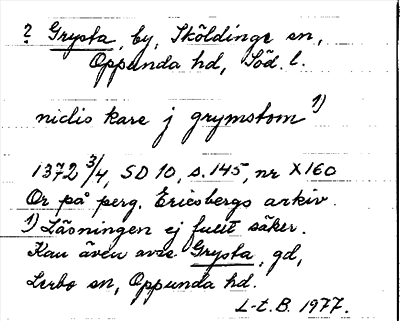 ? Grysta, by, Sköldinge sn,
Oppunda hd, Söd. l.
niclis kare j grymstom 1)
1372 3/4, SD 10, s. 145, nr X160
Or på perg. Ericsbergs arkiv.
1) Läsningen ej fullt säker.
Kan även avse Grysta, gd,
Lerbo sn, Oppunda hd.
L-t. B. 1977.